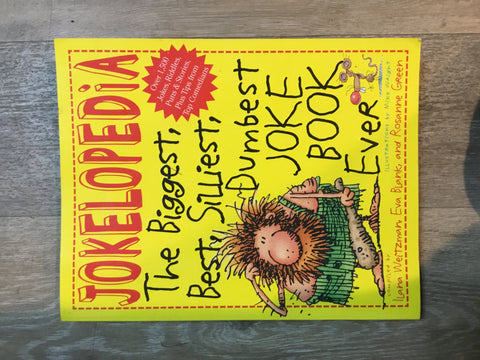 JOKELOPEDIA
Over 1,500
Jokes, Riddles,
Puns & Stories,
Plus Tips from
Top Comedians
The Biggest,
Best, Silliest,
Dumbest
JOKE
BOOK
Ever
COMPILED BY
Ilana Weitzman, Eva Blank, and Rosanne Green
ILLUSTRATIONS BY Mike Wright